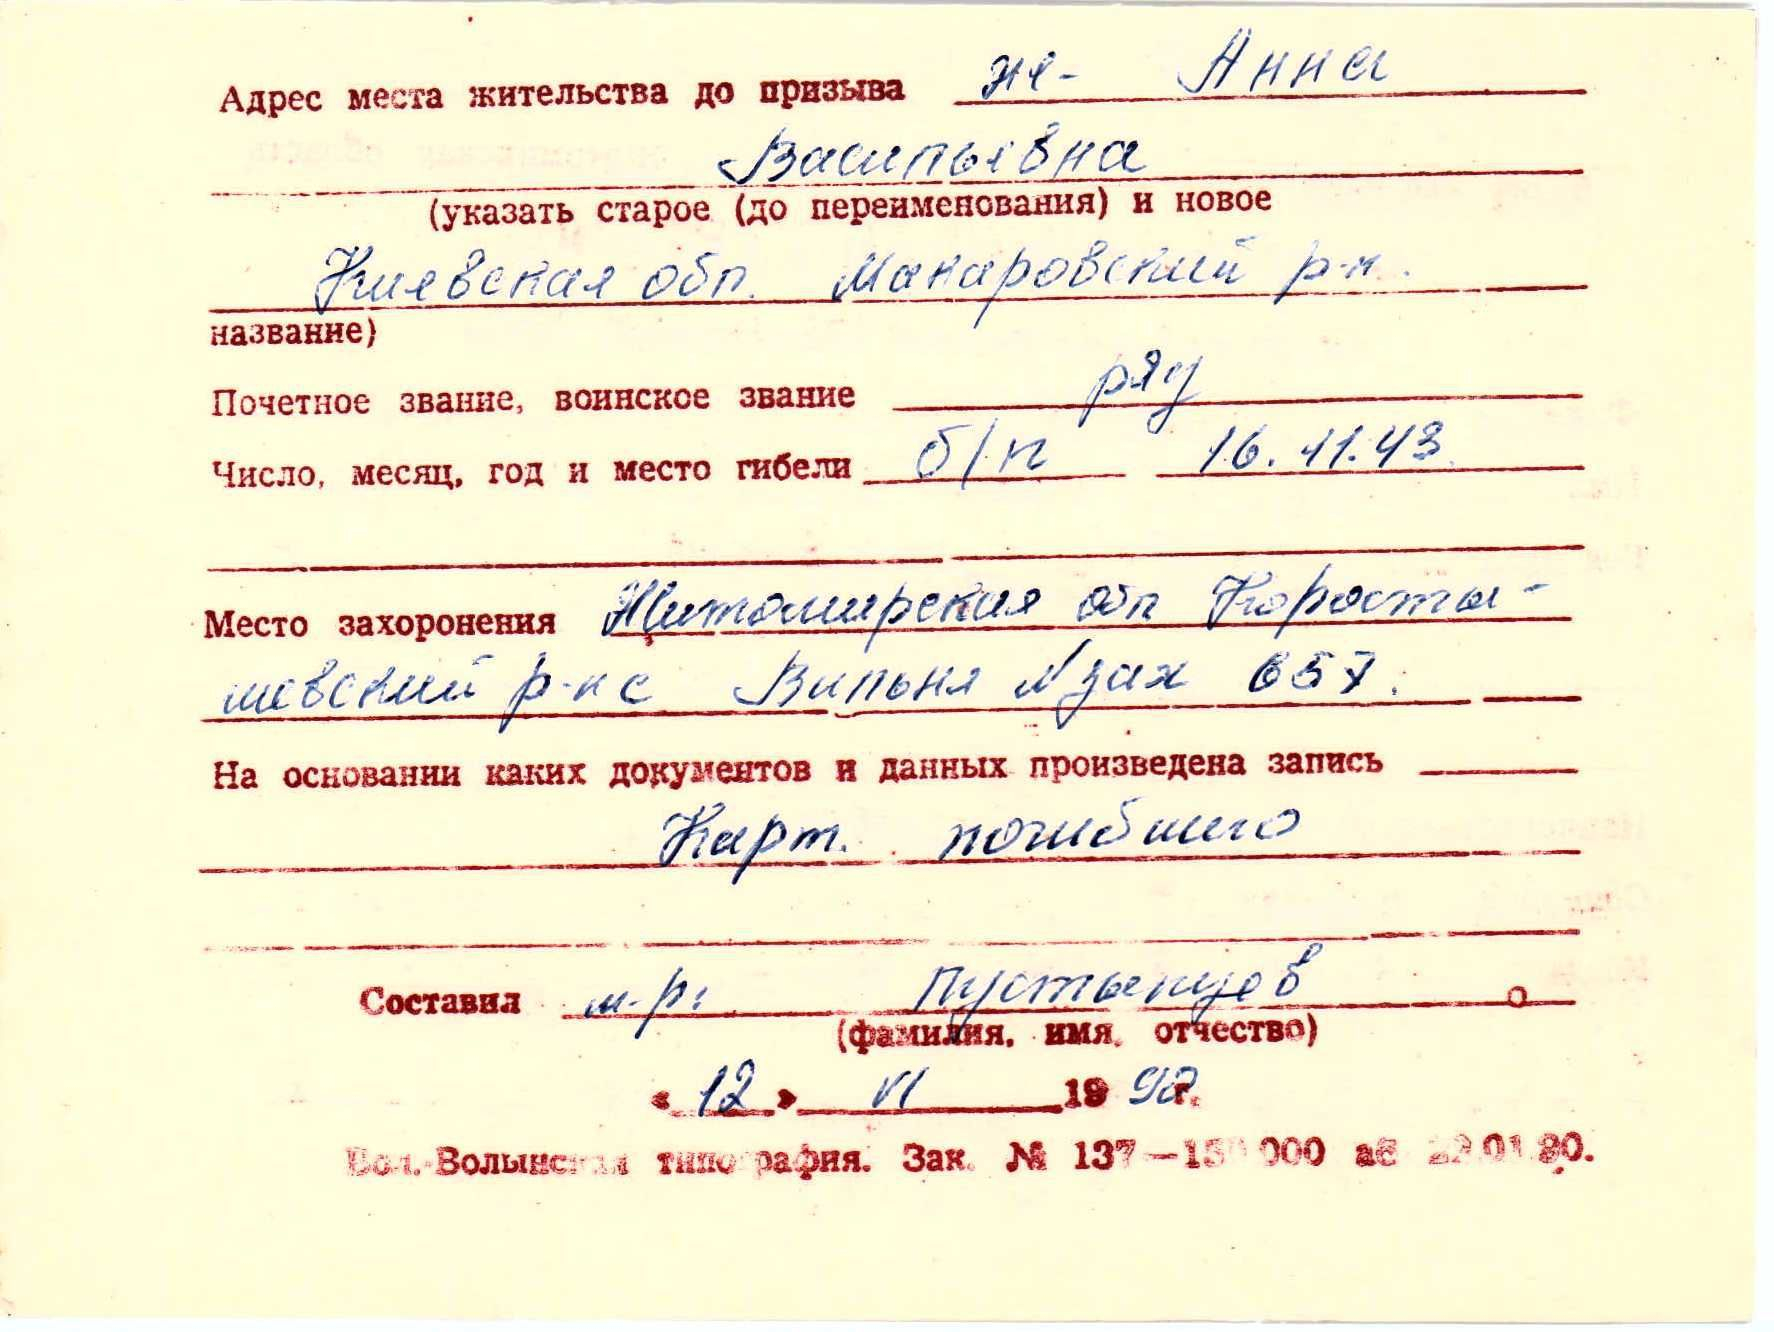 Адрес места жительства до призыва же- Анна
Васильевна
(указать старое (до переименования) и новое
Киевская обл. Макаровский р-н.
название)
Почетное звание, воинское звание ряд
Число, месяц, год и место гибели б/п 16.11.43.
Место захоронения Житомирская обл Коросты-
шевский р-н с Вильня № зах 657.
На основании каких документов и данных произведена запись
Карт. погибшего
Составил м-р: Пустынцев
(фамилия, имя, отчество)
« 12 » VI 19 92 г.
Вол.-Волынская типография. Зак. № 137—150 000 аб